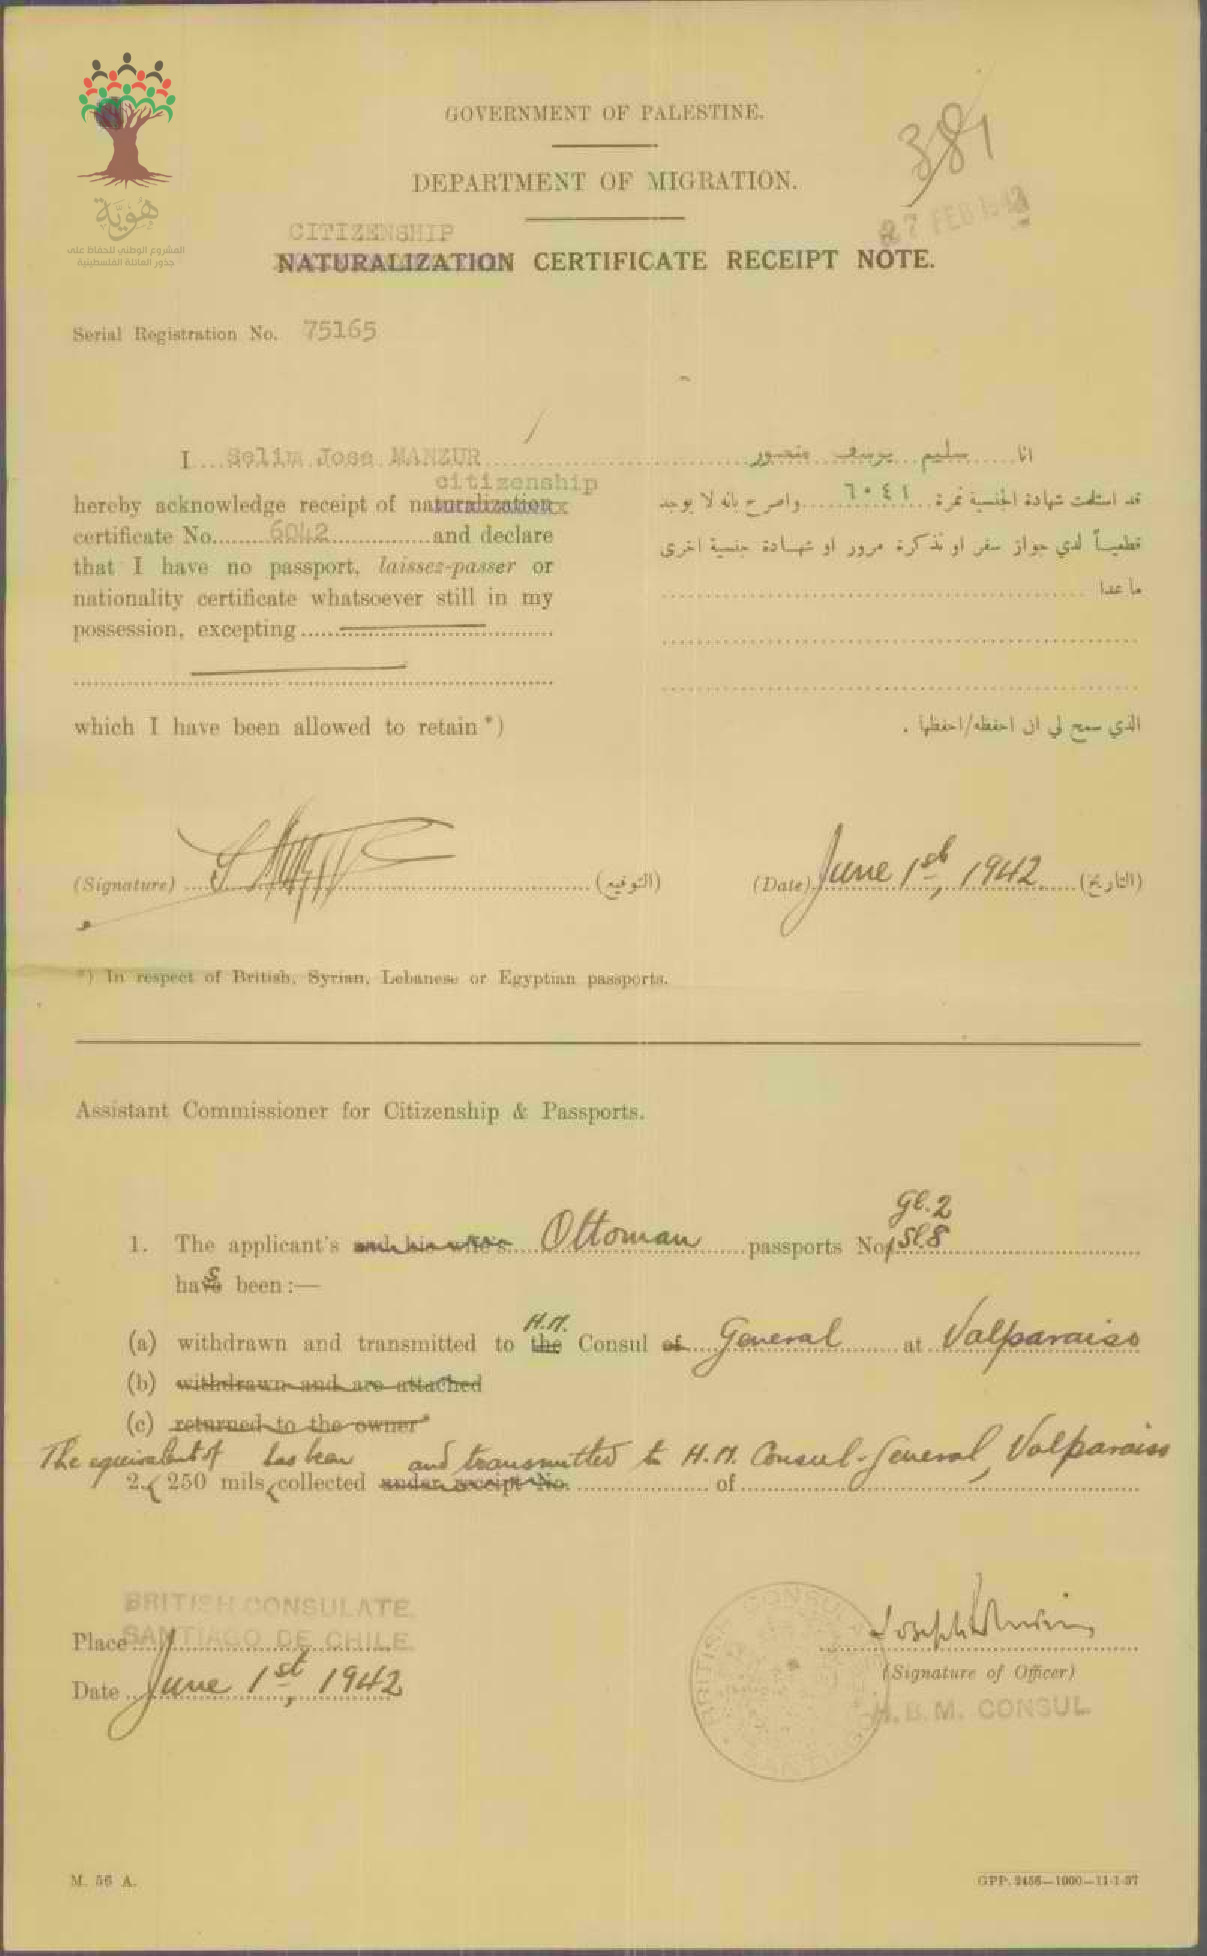 هُوِيَّة
المشروع الوطني للحفاظ على
جذور العائلة الفلسطينية
GOVERNMENT OF PALESTINE.
381
DEPARTMENT OF MIGRATION.
27 FEB 1943
CITIZENSHIP
NATURALIZATION CERTIFICATE RECEIPT NOTE.
Serial Registration No. 75165
I Selim Jose MANZUR
citizenship
hereby acknowledge receipt of naturalization
certificate No. 6042 and declare
that I have no passport, laissez-passer or
nationality certificate whatsoever still in my
possession, excepting
which I have been allowed to retain *)
انا سليم يوسف منصور
قد استلمت شهادة الجنسية نمرة ٦٠٤٢ واصرح بانه لا يوجد
قطعياً لدي جواز سفر او تذكرة مرور او شهادة جنسية اخرى
ما عدا
الذي سمح لي ان احفظه/احفظها .
(Signature) (التوقيع) (Date) June 1st, 1942 (التاريخ)
*) In respect of British, Syrian, Lebanese or Egyptian passports.
Assistant Commissioner for Citizenship & Passports.
Gl. 2
1. The applicant's and his wife's Ottoman passports No. Sl. 8
have s been :—
H.M.
(a) withdrawn and transmitted to the Consul of General at Valparaiso
(b) withdrawn and are attached
(c) returned to the owner*
The equivalent of has been and transmitted to H.M. Consul-General, Valparaiso
2. 250 mils collected under receipt No. of
BRITISH CONSULATE
Place SANTIAGO DE CHILE
Date June 1st, 1942
BRITISH CONSULATE
(Signature of Officer)
H.B.M. CONSUL
M. 56 A.
GPP. 2456—1000—11-1-37